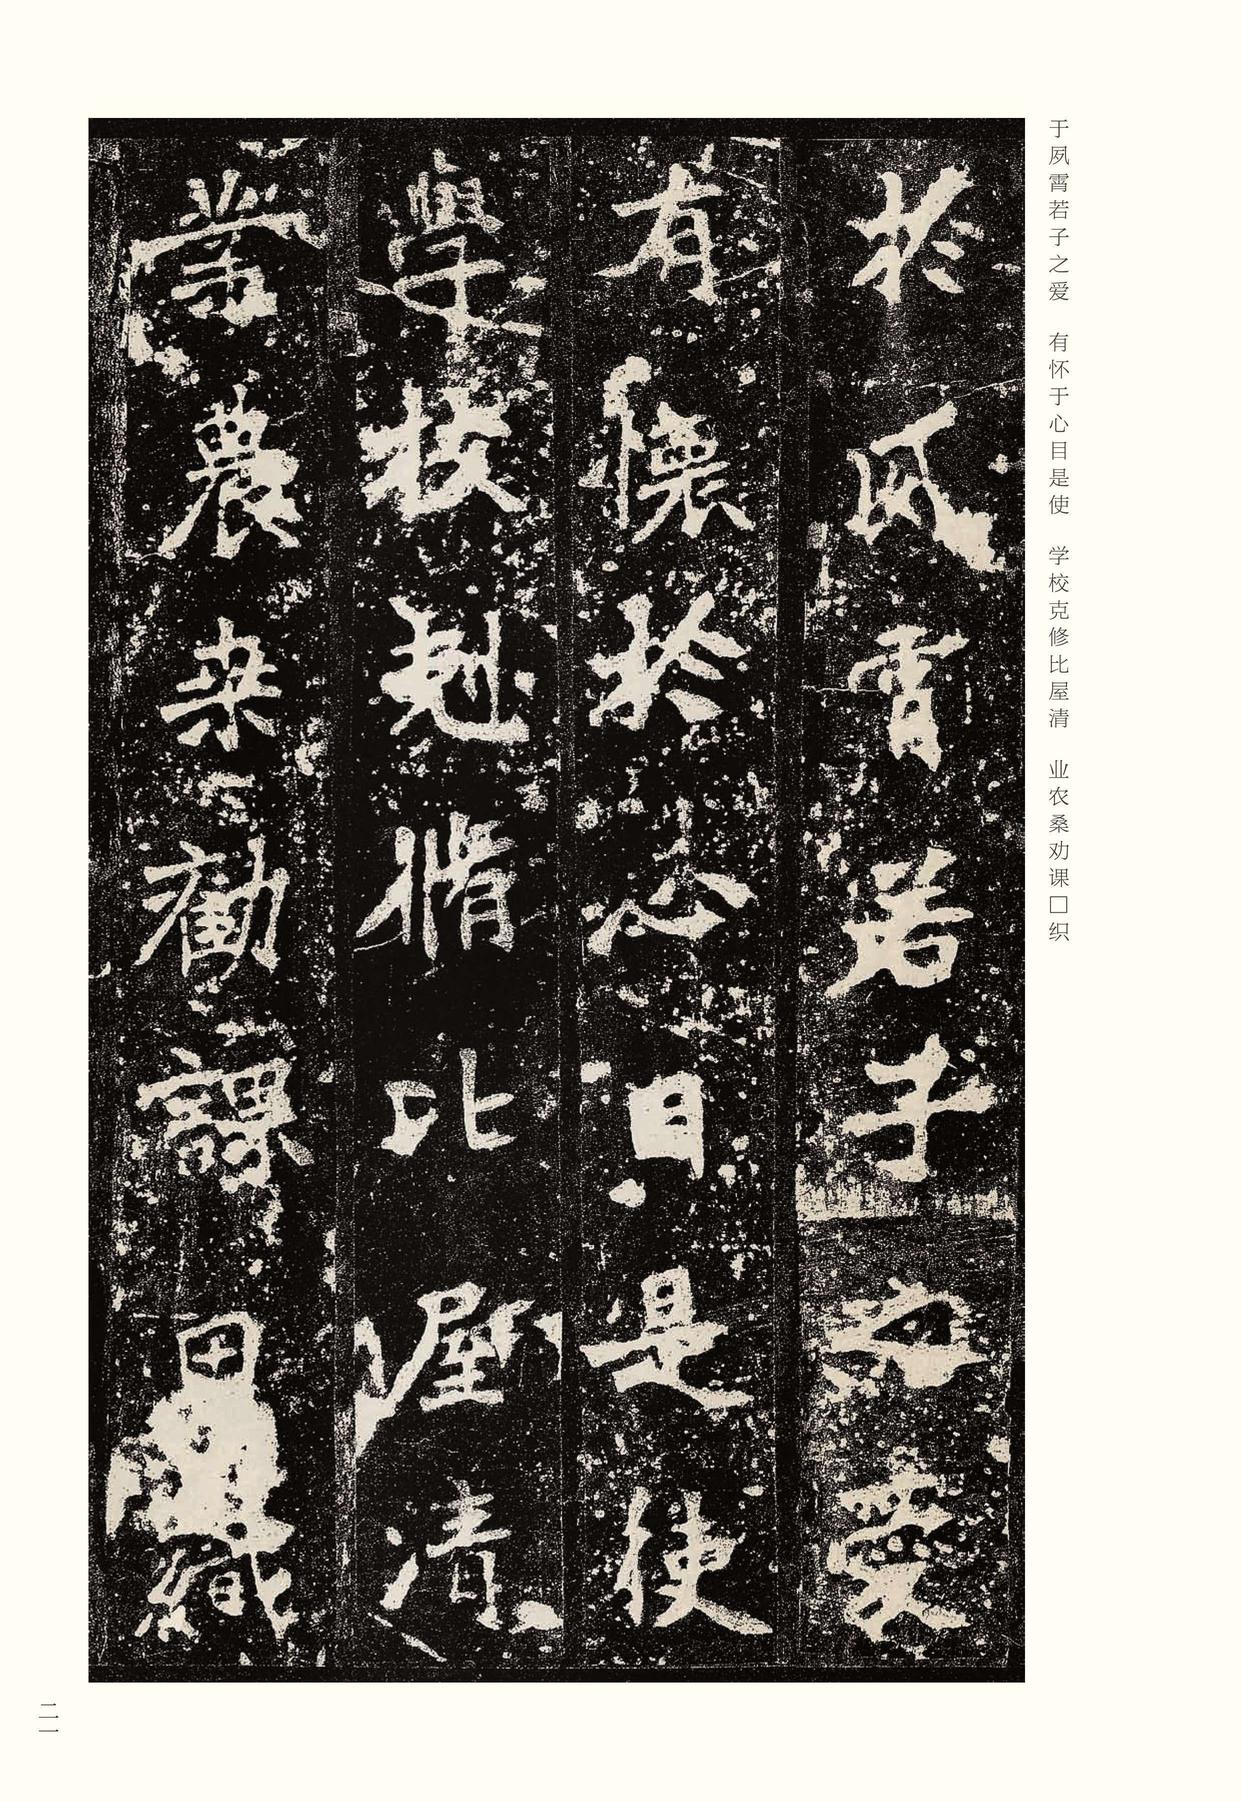 于夙霄若子之爱　有怀于心目是使　学校克修比屋清　业农桑劝课□织
於夙霄若子之愛
有懷於心目是使
學校尅脩比屋清
業農桑勸課織
二一